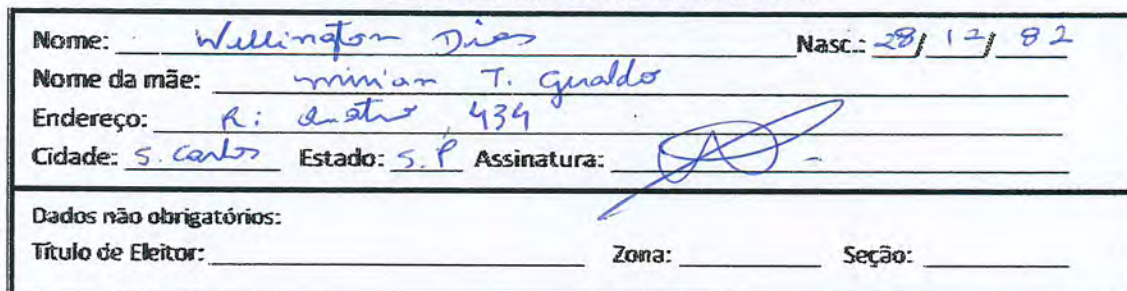 Nome: Wellington Dias Nasc.: 28/12/82
Nome da mãe: Mirian T. Geraldo
Endereço: R: 434
Cidade: S. Carlos Estado: S.P Assinatura:
Dados não obrigatórios:
Título de Eleitor: Zona: Seção: